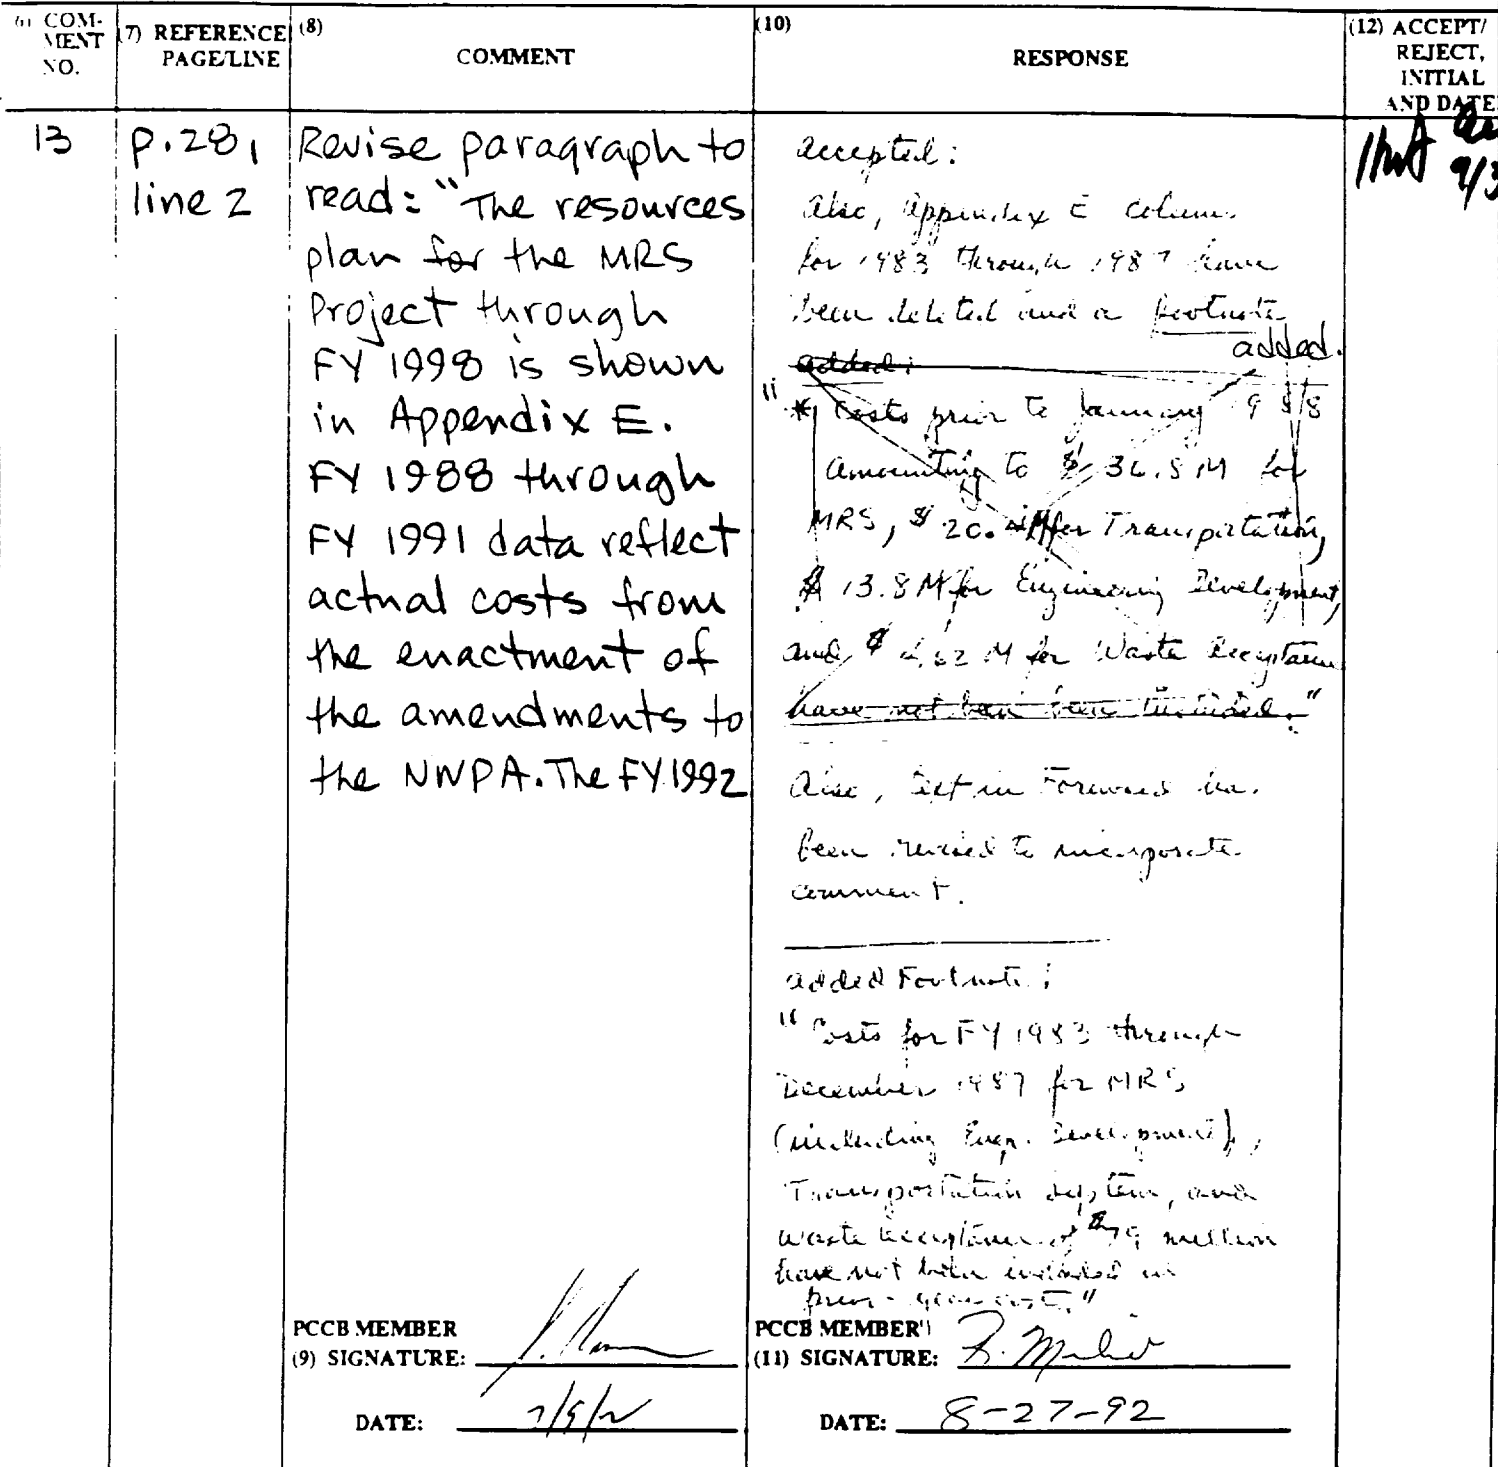 (6) COM-
MENT
NO.
(7) REFERENCE
PAGE/LINE
(8)
COMMENT
(10)
RESPONSE
(12) ACCEPT/
REJECT,
INITIAL
AND DATE
13
p.28,
line 2
Revise paragraph to
read: "The resources
plan for the MRS
Project through
FY 1998 is shown
in Appendix E.
FY 1988 through
FY 1991 data reflect
actual costs from
the enactment of
the amendments to
the NWPA. The FY 1992
accepted:
Also, Appendix E columns
for 1983 through 1987 have
been deleted and a footnote
added.
added:
"* Costs prior to January 1988
amounting to $ for
MRS, $ for Transportation,
$ 13.8 M for Engineering Development,
and $ M for Waste Acceptance
have not been been included."
Also, text in Foreword has
been revised to incorporate
comment.
added Footnote:
"Costs for FY 1983 through
December 1987 for MRS
(including Engr. Development),
Transportation System, and
Waste Acceptance of million
have not been included in
prior-year cost."
PCCB MEMBER
(9) SIGNATURE:
DATE:
PCCB MEMBER
(11) SIGNATURE:
DATE: 8-27-92